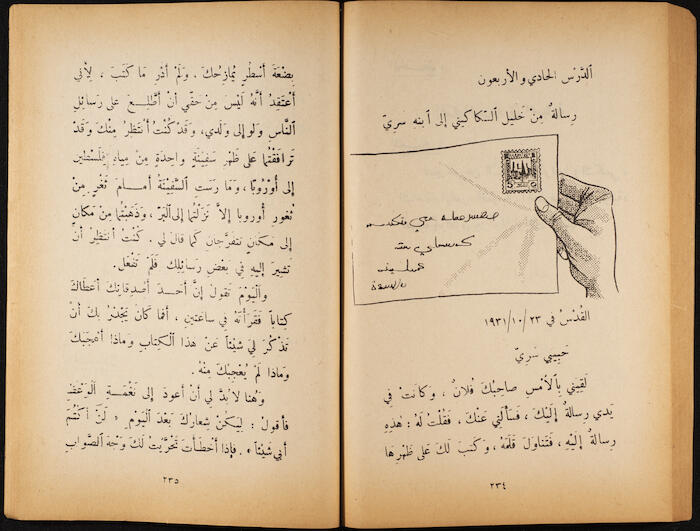 الدَّرْسُ الحَادِي وَالأَرْبَعُون
رِسَالَةٌ مِنْ خَلِيلِ السَّكَاكِينِي إلى ابْنِهِ سَرِيّ
5
القُدْسُ في ٢٣/١٠/١٩٣١
حَبِيبِي سَرِيّ
لَقِيَنِي بِالأَمْسِ صَاحِبُكَ فُلَانٌ ، وَكَانَتْ فِي
يَدِي رِسَالَةٌ إِلَيْكَ ، فَسَأَلَنِي عَنْكَ ، فَقُلْتُ لَهُ : هٰذِهِ
رِسَالَةٌ إِلَيْهِ ، فَتَنَاوَلَ قَلَمَهُ ، وَكَتَبَ لَكَ عَلى ظَهْرِهَا
٢٣٤
بِضْعَةَ أَسْطُرٍ يُمَازِحُكَ . وَلَمْ أَدْرِ مَا كَتَبَ ، لِأَنِّي
أَعْتَقِدُ أَنَّهُ لَيْسَ مِنْ حَقِّي أَنْ أَطَّلِعَ عَلى رَسَائِلِ
النَّاسِ وَلَو إِلى وَلَدِي، وَقَدْ كُنْتُ أَنْتَظِرُ مِنْكَ وَقَدْ
تَرَافَقْتُمَا عَلى ظَهْرِ سَفِينَةٍ وَاحِدَةٍ مِنْ مِيَاهِ فِلَسْطِينَ
إِلى أُورُوبّا ، وَمَا رَسَتِ السَّفِينَةُ أَمَامَ ثَغْرٍ مِنْ
ثُغُورِ أُورُوبا إِلَّا نَزَلْتُمَا إِلى البَرِّ ، وَذَهَبْتُمَا مِنْ مَكَانٍ
إِلى مَكَانٍ تَتَفَرَّجَانِ كَمَا قَالَ لِي . كُنْتُ أَنْتَظِرُ أَنْ
تُشِيرَ إِلَيْهِ فِي بَعْضِ رَسَائِلِكَ فَلَمْ تَفْعَل.
وَالْيَوْمَ تَقُولُ إِنَّ أَحَدَ أَصْدِقَائِكَ أَعْطَاكَ
كِتَابًا فَقَرَأْتَهُ فِي سَاعَتَيْنِ ، أَفَمَا كَانَ يَجْدُرُ بِكَ أَنْ
تَذْكُرَ لِي شَيْئًا عَنْ هٰذَا الْكِتَابِ وَمَاذَا أَعْجَبَكَ
وَمَاذَا لَمْ يُعْجِبْكَ مِنْهُ .
وَهُنَا لَا بُدَّ لِي أَنْ أَعُودَ إِلى نَغْمَةِ الْوَعْظِ
فَأَقُولَ : لِيَكُنْ شِعَارُكَ بَعْدَ الْيَوْمِ « لَنْ أَكْتُمَ
أَبِي شَيْئًا » . فَإِذَا أَخْطَأْتَ تَحَرَّيْتُ لَكَ وَجْهَ الصَّوَابِ
٢٣٥